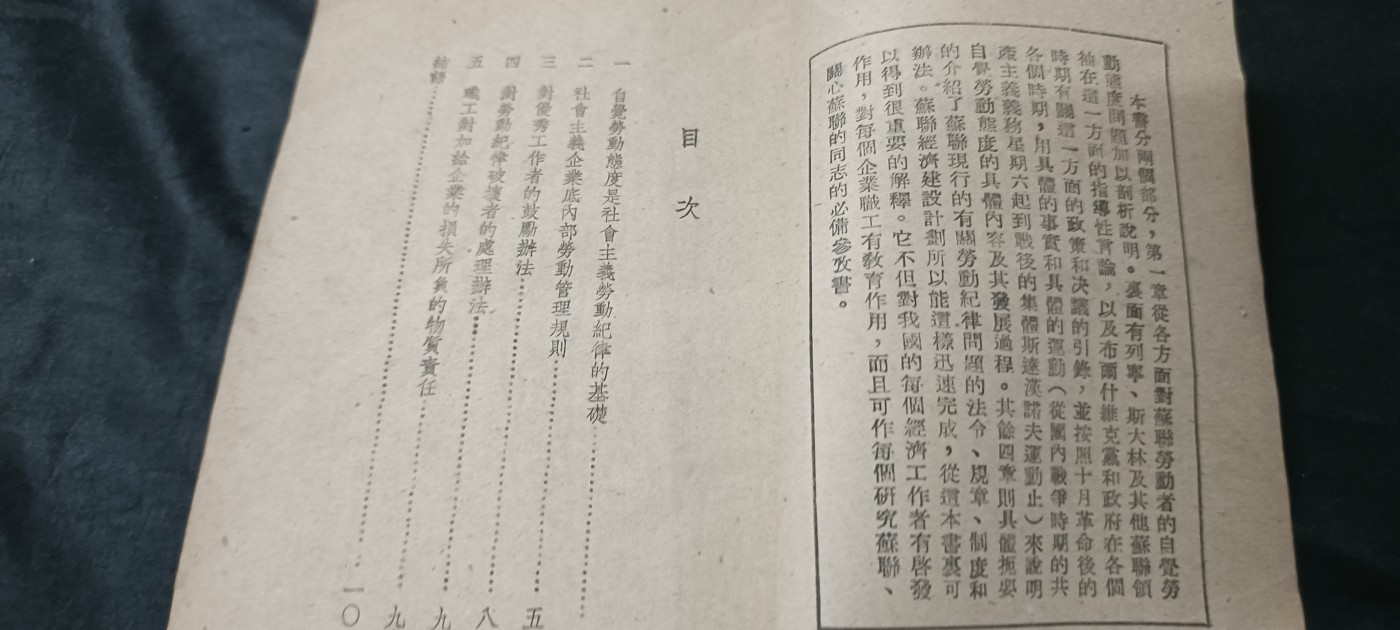 本書分兩個部分，第一章從各方面對蘇聯勞動者的自覺勞
動態度問題加以剖析說明。裏面有列寧、斯大林及其他蘇聯領
袖在這一方面的指導性言論，以及布爾什維克黨和政府在各個
時期有關這一方面的政策和決議的引錄，並按照十月革命後的
各個時期，用具體的事實和具體的運動（從國內戰爭時期的共
產主義義務星期六起到戰後的集體斯達漢諾夫運動止）來說明
自覺勞動態度的具體內容及其發展過程。其餘四章則具體扼要
的介紹了蘇聯現行的有關勞動紀律問題的法令、規章、制度和
辦法。蘇聯經濟建設計劃所以能這樣迅速完成，從這本書裏可
以得到很重要的解釋。它不但對我國的每個經濟工作者有啓發
作用，對每個企業職工有教育作用，而且可作每個研究蘇聯、
關心蘇聯的同志的必備參攷書。
目次
一 自覺勞動態度是社會主義勞動紀律的基礎
二 社會主義企業底內部勞動管理規則
三 對優秀工作者的鼓勵辦法
四 對勞動紀律破壞者的處理辦法
五 職工對加給企業的損失所負的物質責任
結語
五
八
九
九
一〇